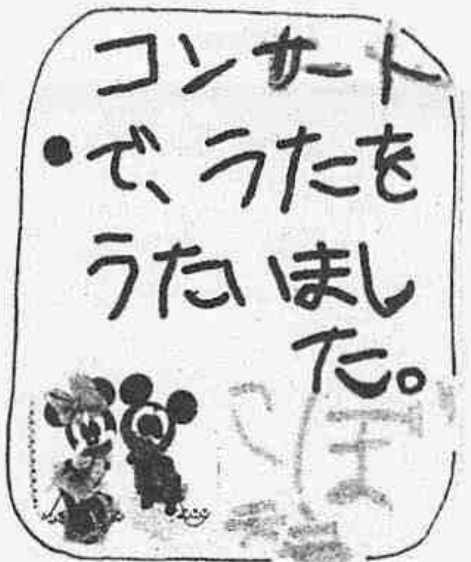 コンサート
で、うたを
うたいました。